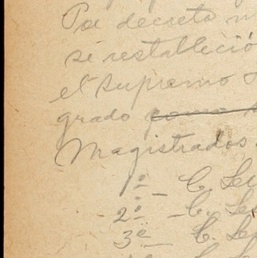 Por decreto n
se restableció
el Supremo
grado como
Magistrados
1º - C. Le
- 2º - C. Le
3º - C. Le